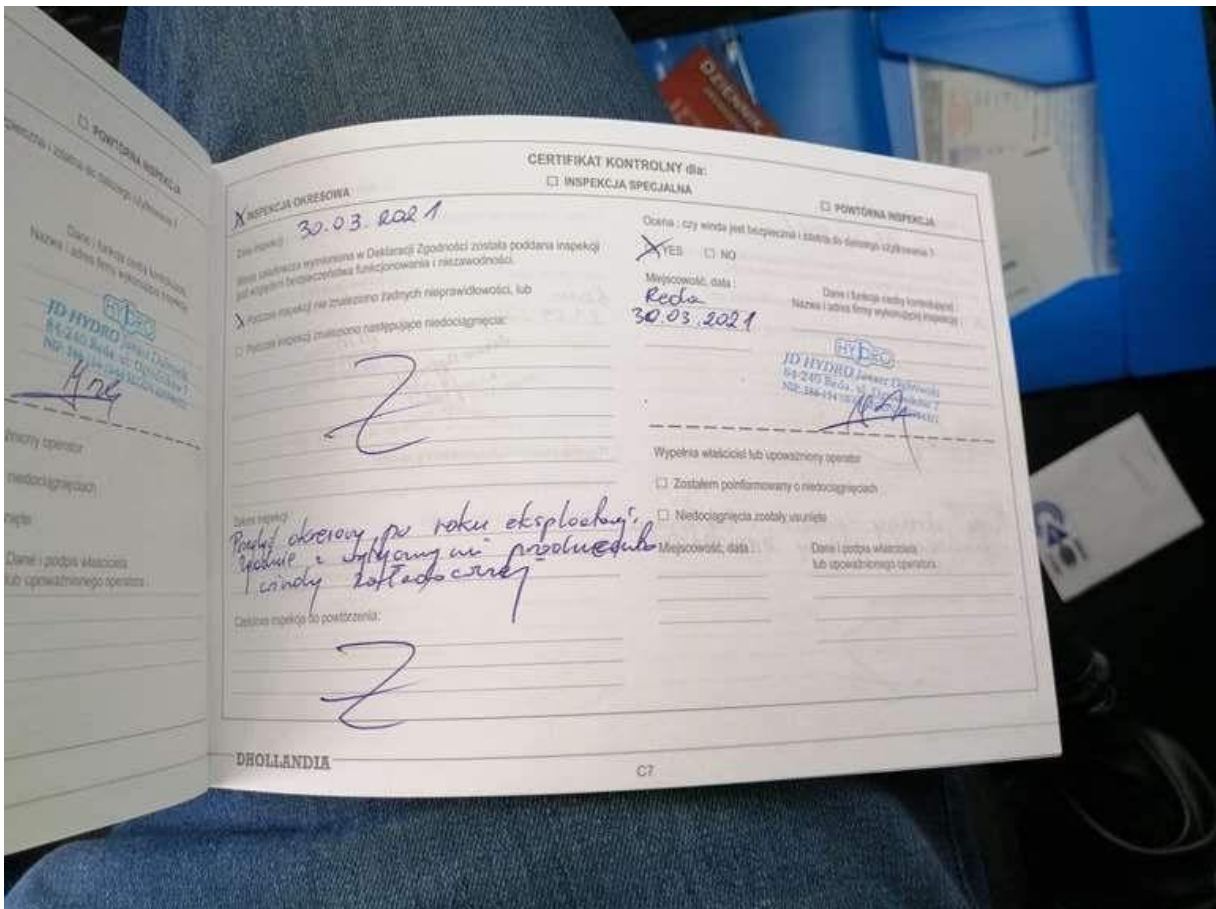 ☐ POWTÓRNA INSPEKCJA
Dane i funkcja osoby kontrolującej
Nazwa i adres firmy wykonującej inspekcję
HYDRO
JD HYDRO Janusz
84-240 Reda, ul.
NIP:
operator
niedociągnięciach
Dane i podpis właściciela
lub upoważnionego operatora
CERTIFIKAT KONTROLNY dla:
☒ INSPEKCJA OKRESOWA
☐ INSPEKCJA SPECJALNA
☐ POWTÓRNA INSPEKCJA
Data inspekcji: 30.03.2021
Winda załadowcza wymieniona w Deklaracji Zgodności została poddana inspekcji
pod względem bezpieczeństwa funkcjonowania i niezawodności.
☒ Podczas inspekcji nie znaleziono żadnych nieprawidłowości, lub
☐ Podczas inspekcji znaleziono następujące niedociągnięcia:
Zakres inspekcji
okresowy po roku eksploatacji.
Zgodnie z wytycznymi producenta
windy załadowczej
Częściowa inspekcja do powtórzenia:
Ocena : czy winda jest bezpieczna i zdatna do dalszego użytkowania ?
☒ YES ☐ NO
Miejscowość, data :
Reda
30.03.2021
Dane i funkcja osoby kontrolującej
Nazwa i adres firmy wykonującej inspekcję :
HYDRO
JD HYDRO Janusz
84-240 Reda, ul.
NIP:
Wypełnia właściciel lub upoważniony operator
☐ Zostałem poinformowany o niedociągnięciach
☐ Niedociągnięcia zostały usunięte
Miejscowość, data :
Dane i podpis właściciela
lub upoważnionego operatora :
DHOLLANDIA
C7